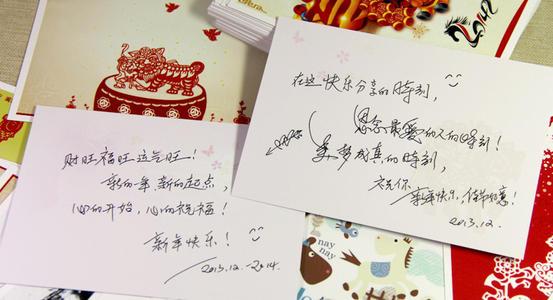 2014
在这快乐分享的时刻,
思念最爱的人的时刻!
美梦成真的时刻,
祝你
新年快乐,佳节如意!
2013.12.
财旺福旺运气旺!
新的一年,新的起点,
心的开始,心的祝福!
新年快乐!
2013.12.-2014.
nay
nay